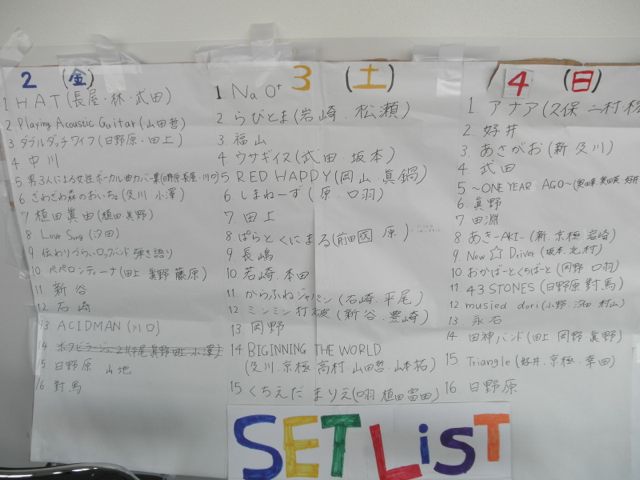 2 (金)
1 HAT (長屋・林・武田)
2 Playing Acoustic Guitar (山田哲)
3 ダラルダッチワイフ (日野原・田上)
4 中川
5 男3人による女性ボーカル曲カバー集
6 ざわざわ森の (及川 小澤)
7 植田真由 (植田 真野)
8 Love Song (汐田)
9 伝わりづらいロックバンド 弾き語り
10 ペペロンチーナ (田上 真野 藤原)
11 新谷
12 石崎
13 ACIDMAN
5 日野原 山地
16 對馬
3 (土)
1 Na O+
2 らびとま (岩崎・松瀬)
3 福山
4 ウナギイヌ (武田・坂本)
5 RED HAPPY (岡山 真鍋)
6 しまねーず (原・口羽)
7 田上
8 ぱらとくにまろ (前田國 原)
9 長嶋
10 岩崎 本田
11 からふねジャパン (石崎・平尾)
12 ミンミン打波 (新谷・豊崎)
13 岡野
14 BIGINNING THE WORLD
(及川 京極 高村 山田哲 山本祐)
15 くちえだ まりえ (口羽 植田 富田)
4 (日)
1 アナア (久保 二村
2 好井
3 あさがお (新 及川)
4 武田
5 ~ONE YEAR AGO~
6 真野
7 田淵
8 あきーAKI- (新・京極 岩崎)
9 New☆Driver (坂本・北村)
10 おかばーとくちばーと (岡野 口羽)
11 43 STONES (日野原 對馬)
12 musied dori (小野 汐田 村山)
13 永石
14 田神バンド (田上 岡野 真野)
15 Triangle (好井・京極・幸田)
16 日野原
SET LiST